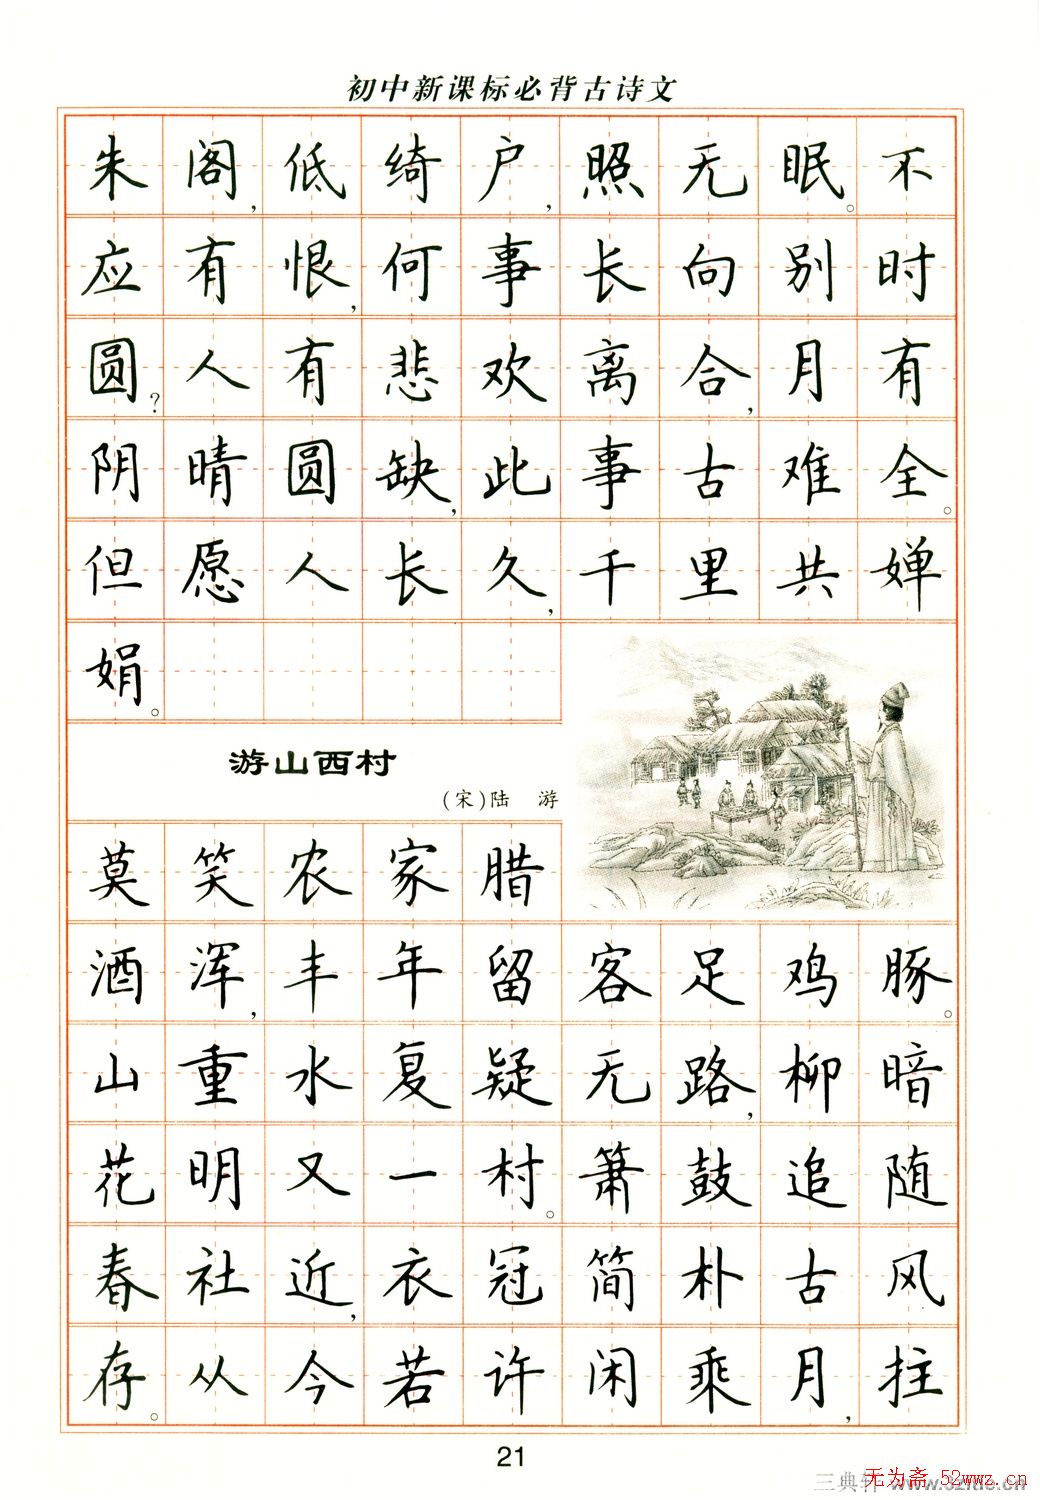 初中新课标必背古诗文
朱阁,低绮户,照无眠。不
应有恨,何事长向别时
圆?人有悲欢离合,月有
阴晴圆缺,此事古难全。
但愿人长久,千里共婵
娟。
游山西村
(宋)陆 游
莫笑农家腊
酒浑,丰年留客足鸡豚。
山重水复疑无路,柳暗
花明又一村。箫鼓追随
春社近,衣冠简朴古风
存。从今若许闲乘月,拄
21
三典轩 www.
无为斋 52wwz.cn